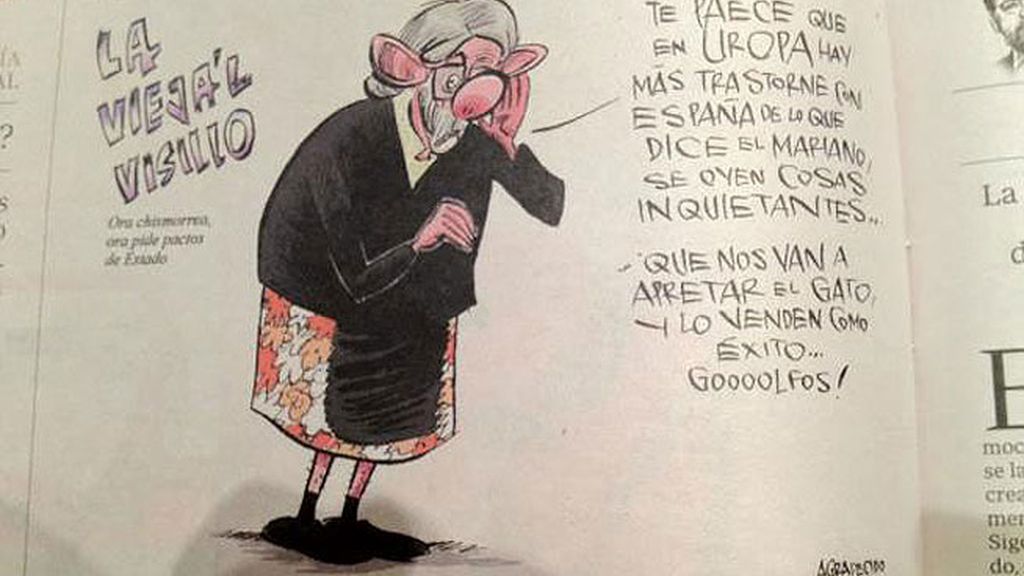 LA
VIEJA'L
VISILLO
Ora chismorrea,
ora pide pactos
de Estado
TE PAECE QUE
EN UROPA HAY
MÁS TRASTORNE CON
ESPAÑA DE LO QUE
DICE EL MARIANO,
SE OYEN COSAS
INQUIETANTES..
- QUE NOS VAN A
APRETAR EL GATO,
Y LO VENDEN COMO
ÉXITO...
GOOOOLFOS!
AGRADECIDO
ÍA
AL
?
s
o
La
d
E
moc
se la
crea
mer
Sige
do,